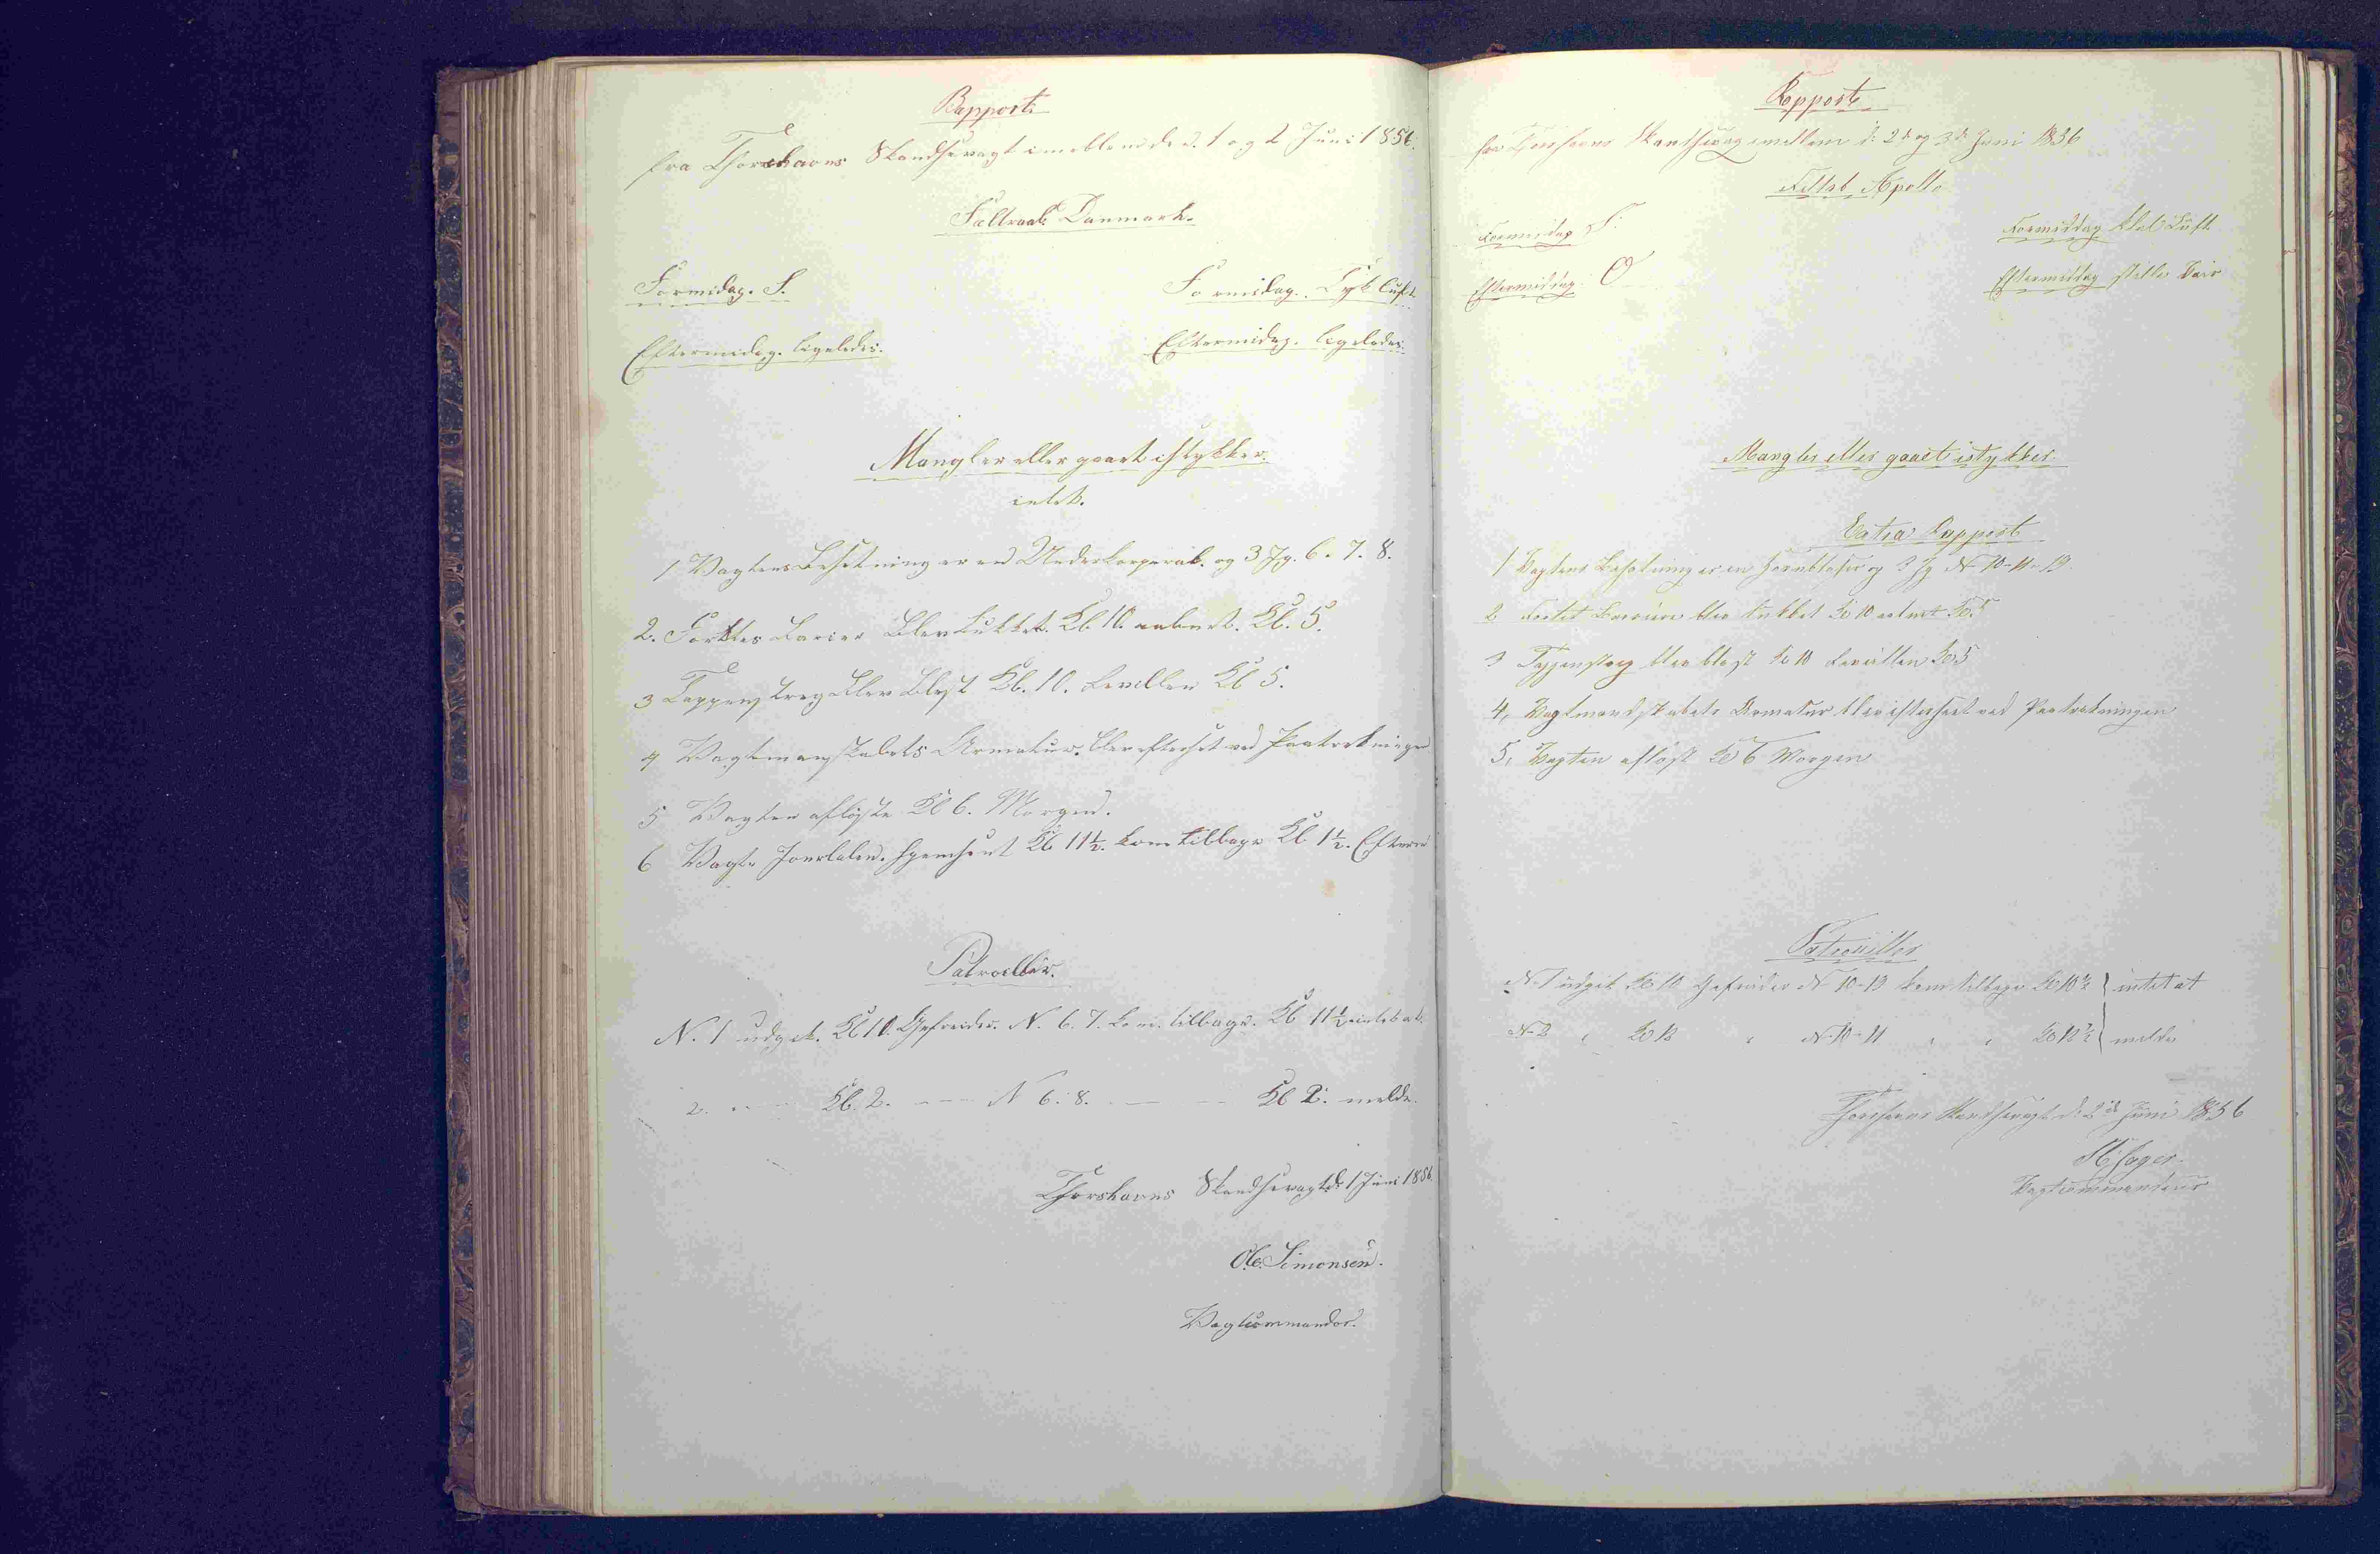 Rapport
fra Thorshavns Skandsevagt imellem de d. 1 og 2 Juni 1856.
Feltraab Danmark.
Formidag. S.
Formidag. Tyk luft
Eftermidag. ligeledes.
Eftermidag. ligeledes.
Mangler eller gaaet istykker.
intet.
1 Vagtens Besetning er en Underkorporal. og 3 Jg. 6. 7. 8.
2. Forttes Barier Blev Lukket. Kl. 10. aabnet. Kl. 5.
3 Tappenstreg Blev Blest Kl. 10. Revellen Kl 5.
4 Vagtmanskabets Armatur. Blev efterset ved Paatrekningen
5 Vagten afløste Kl 6. Morgen.
6 Vagt Kl 11½. kom tilbage Kl 1½.
Patroeller.
N. 1 udgik. Kl 10. Gefreider. N. 6. 7. kom. tilbage. Kl 11½ intet at.
2. — Kl. 2. — N 6. 8. — — Kl melde.
Thorshavns Skandsevagt d: 1 Juni 1856.
Ole. Simonsen.
Vagtcommandør.
Rapport
fra Thorshavns Skantsevagt imellem d: 2de og 3de Juni 1856
Feltrb Apollo
Formiddag S.
Formiddag klal Luft
Eftermiddag O
Eftermiddag stille Veir
Mangler eller gaaet istykker.
Extra Rapport
1 Vagtens Besætning er en Hornblæser og 3 Jg N 10-11-13.
2 Fortet Barriere blev lukket Kl 10 aabnet Kl. 5
3 Tappenstreg blev blæst Kl 10 Revellien Kl 5
4, Vagtmandskabets Armatur blev efterseet ved Paatrækningen
5, Vagten afløst Kl 6 Morgen
Patrouiller
N-1 udgik Kl 10 Gefreider N 10-13 kom tilbage Kl 10½ intet at
N-2 " Kl 12 " N-10-11 " " Kl 12½ melde
Thorshavns Skandsevagt d: 2de Juni 1856
Vagtcommandeur